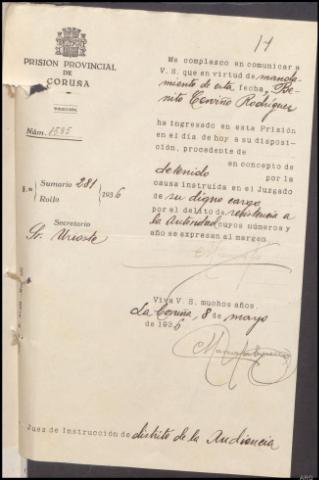 14
PRISION PROVINCIAL
DE
CORUÑA
DIRECCIÓN
Núm. 1585
S.m/ Sumario 281 / 1936
Rollo
Secretario
Sr. Urioste
Me complazco en comunicar a
V. S. que en virtud de manda-
miento de esta fecha, Be-
nito Cerviño Rodríguez
ha ingresado en esta Prisión
en el día de hoy a su disposi-
ción, procedente de
en concepto de
detenido por la
causa instruida en el Juzgado
de su digno cargo
por el delito de resistencia a
la Autoridad cuyos números y
año se expresan al margen
Viva V. S. muchos años.
La Coruña, 8 de mayo
de 1936
Juez de Instrucción de distrito de la Audiencia
ARG